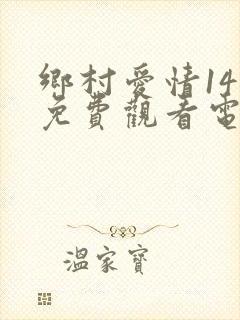 鄉村愛情14
免費觀看電
溫家寶